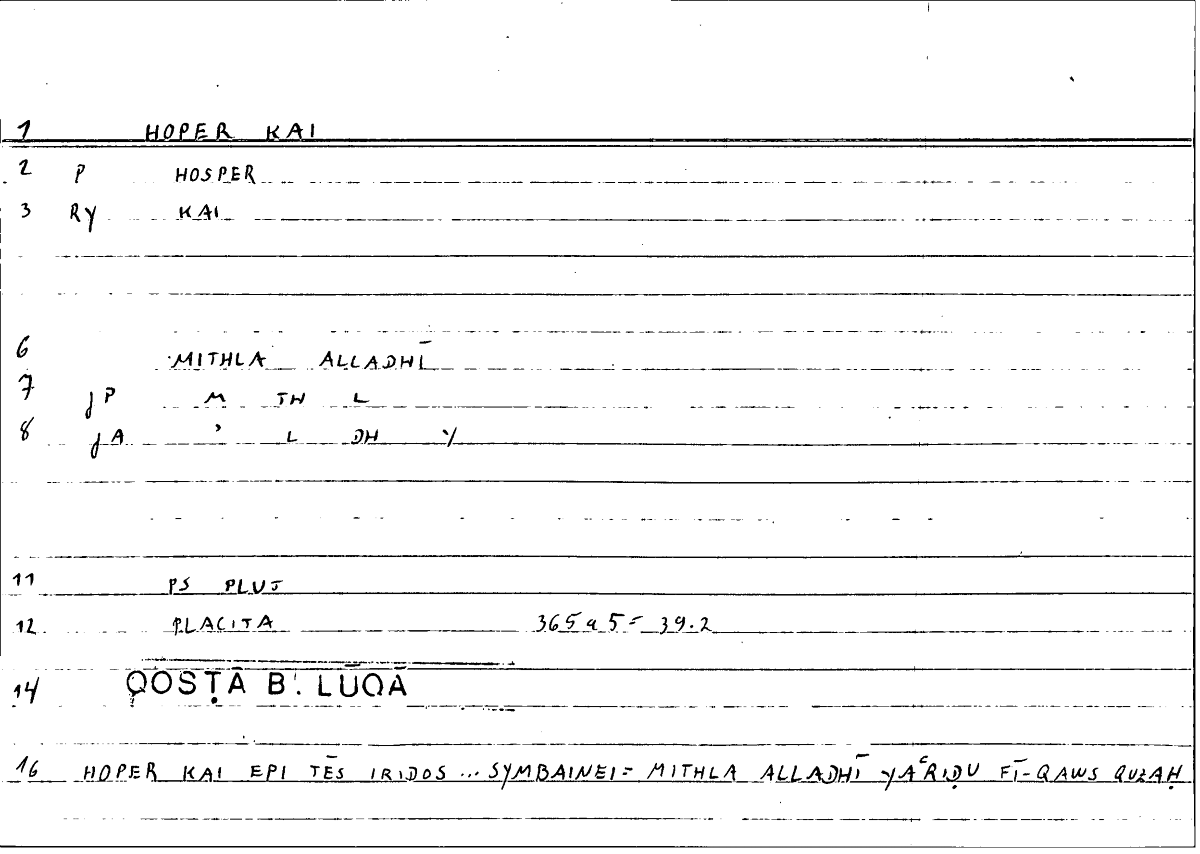 1 HOPER KAI
2 P HOSPER
3 RY KAI
6 MITHLA ALLADHĪ
7 jP M TH L
8 jA ʾ L DH Y
11 PS PLUT
12 PLACITA 365a5 = 39.2
14 QOSṬĀ B. LŪQĀ
16 HOPER KAI EPI TĒS IRIDOS ... SYMBAINEI = MITHLA ALLADHĪ YAʿRIḌU FĪ-QAWS QUZAḤ